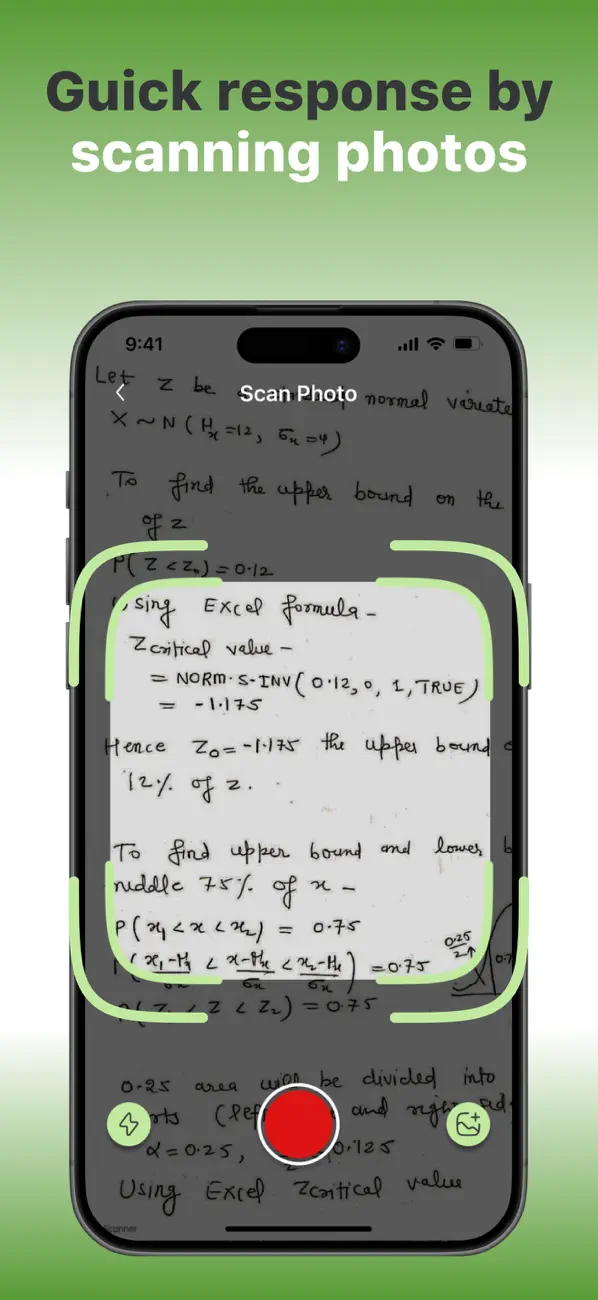 Guick response by
scanning photos
9:41
Scan Photo
Let Z be normal variate
X ~ N ( μx =12, σx =4)
To find the upper bound on the
of z
P( Z < Z₀) = 0.12
Using Excel formula -
Zcritical value -
= NORM.S-INV( 0.12, 0, 1, TRUE)
= -1.175
Hence Z₀ = -1.175 the upper bound
12% of z.
To find upper bound and lower b
middle 75% of x -
P( x₁ < x < x₂) = 0.75
P( x₁-μx/σx < x-μx/σx < x₂-μx/σx ) = 0.75
0.25/2
0.7
P( Z₁ < Z < Z₂) = 0.75
0.25 area will be divided into
(left and right
α = 0.25, 0.125
Using Excel Zcritical value
Scanner